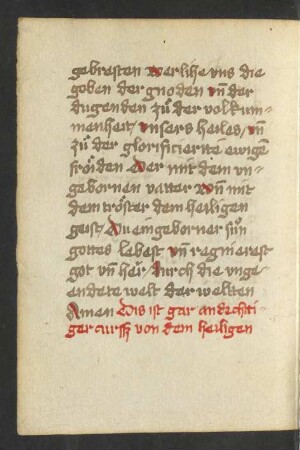 gebresten verlihe vns die
goben der gnoden vn̄ der
dugenden zů der volkum-
manheit / vnsers heiles / vn̄
zů der glorificierite ewigē
froͤiden Der mit dem vn-
gebornen vatter vn̄ mit
dem troͤster dem heiligen
geist / Du eingeborner sůn
gottes lebest vn̄ regnierest
got vn̄ her / durch die vnge
endete welt der welten
Amen Dis ist gar andechti-
ger curß von dem heiligen